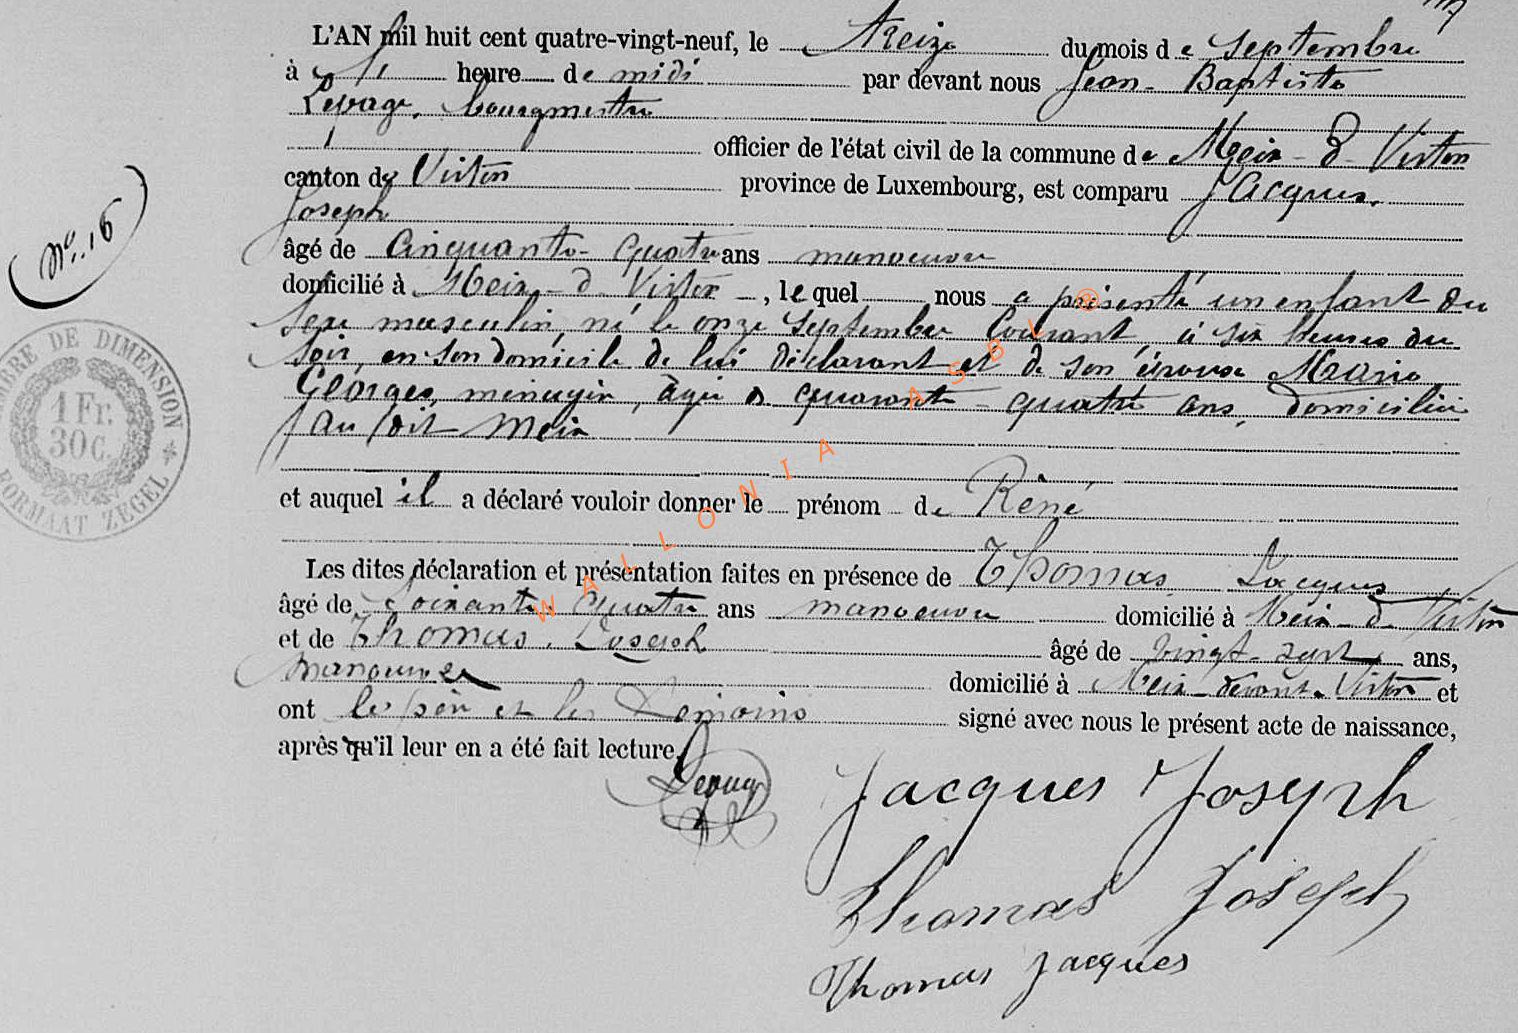 L'AN mil huit cent quatre-vingt-neuf, le treize du mois de Septembre
à heure de midi par devant nous Jean-Baptiste
Lepage, bourgmestre
officier de l'état civil de la commune de Meix-d-Virton
canton de Virton province de Luxembourg, est comparu Jacques
Joseph
âgé de cinquante-quatre ans manoeuvre
domicilié à Meix-d-Virton, lequel nous a présenté un enfant du
sexe masculin, né le onze Septembre Courant, à six heures du
soir, en son domicile de lui déclarant et de son épouse Marie
Georges, ménagère, âgée de quarante-quatre ans, domiciliée
au dit Meix
et auquel il a déclaré vouloir donner le prénom de Réné
Les dites déclaration et présentation faites en présence de Thomas Jacques
âgé de soixante quatre ans manoeuvre domicilié à Meix-d-Virton
et de Thomas, Joseph âgé de vingt-sept ans,
manoeuvre domicilié à Meix-devant-Virton et
ont le père et les témoins signé avec nous le présent acte de naissance,
après qu'il leur en a été fait lecture.
N° 16
TIMBRE DE DIMENSION
1 Fr.
30 C.
FORMAAT ZEGEL
Lepage
Jacques Joseph
Thomas Joseph
Thomas Jacques
WALLONIA ASBL ®